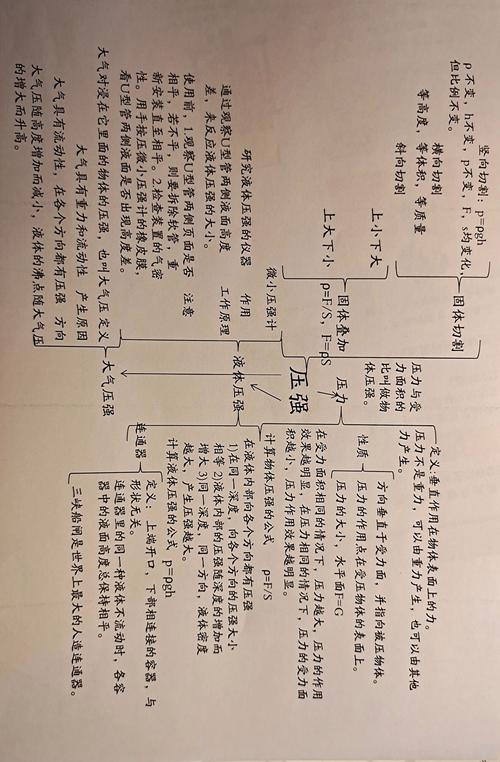 压强
压力与受
力面积的
比叫做物
体压强。
压力
定义:垂直作用在物体表面上的力。
压力不是重力,可以由重力产生,也可以由其他
力产生。
性质
方向垂直于受力面,并指向被压物体。
压力的作用点在受压物体的表面上。
压力的大小,水平面F=G
在受力面积相同的情况下,压力越大,压力的作用
效果越明显,在压力相同的情况下,压力的受力面
积越小,压力作用效果越明显。
计算物体压强的公式 ρ=F/S
固体切割
竖向切割:p=ρgh
ρ不变,h不变,p不变,F,s均变化,
但比例不变。
横向切割
等高度,等体积,等质量
斜向切割
固体叠加
ρ=F/S,F=ρS
上小下大
上大下小
液体压强
微小压强计
研究液体压强的仪器 作用
通过观察U型管两侧液面高度
差,来反应液体压强的大小。 工作原理
使用前,1.观察U型管两侧页面是否 注意
相平,若不平,则要拆除软管,重
新安装直至相平。2.检查装置的气密
性。用手按压微小压强计的橡皮膜,
看U型管两侧液面是否出现高度差。
在液体内部向各个方向都有压强
1)在同一深度,向各个方向的压强大小
相等 2)液体内部的压强随深度的增加而
增大 3)同一深度,同一方向,液体密度
越大,产生压强越大。
计算液体压强的公式 p=ρgh
连通器
定义:上端开口,下部相连接的容器,与
形状无关。
连通器里的同一种液体不流动时,各容
器中的液面高度总保持相平。
三峡船闸是世界上最大的人造连通器。
大气压强
大气对浸在它里面的物体的压强,也叫大气压 定义
大气具有重力和流动性 产生原因
大气具有流动性,在各个方向都有压强 方向
大气压随高度增加而减小,液体的沸点随大气压
的增大而升高。